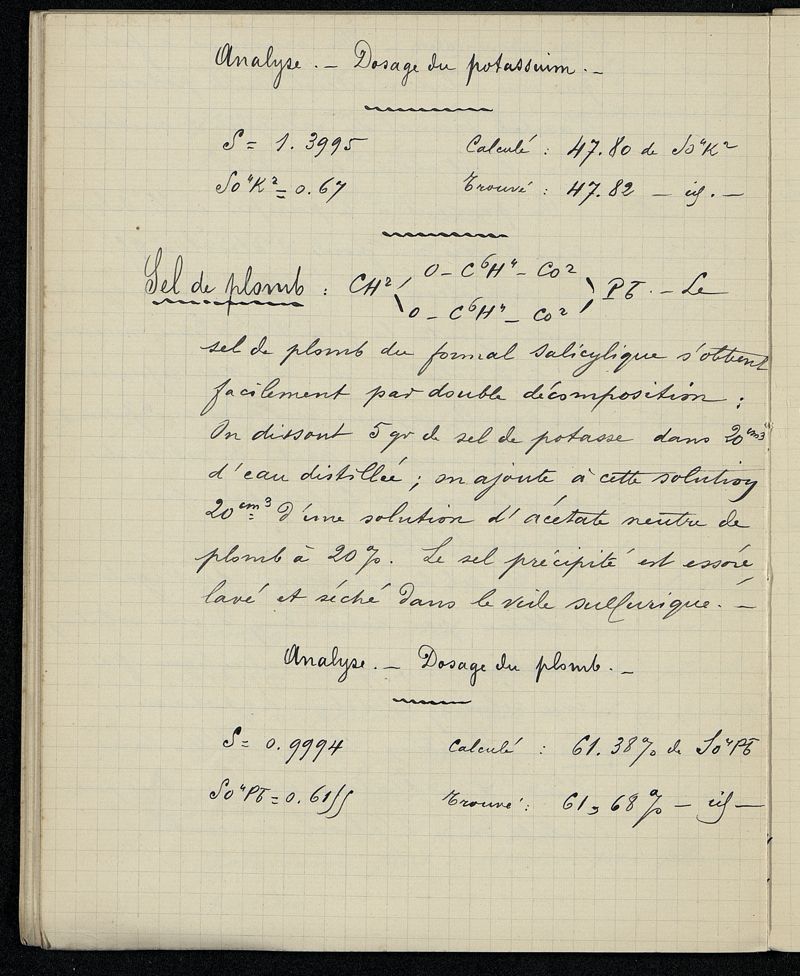 Analyse. — Dosage du potassium. —
S = 1.3995 Calculé : 47.80 de So⁴K²
So⁴K² = 0.67 Trouvé : 47.82 — id. —
O — C⁶H⁴ — Co²
Sel de plomb : CH² Pb. — Le
O — C⁶H⁴ — Co²
sel de plomb du formal salicylique s'obtient
facilement par double décomposition :
On dissout 5 gr de sel de potasse dans 20 cm³
d'eau distillée ; on ajoute à cette solution
20 cm³ d'une solution d'acétate neutre de
plomb à 20 %. Le sel précipité est essoré
lavé et séché dans le vide sulfurique. —
Analyse. — Dosage du plomb. —
S = 0.9994 Calculé : 61.38 % de So⁴Pb
So⁴Pb = 0.61 Trouvé : 61,68 % — id —